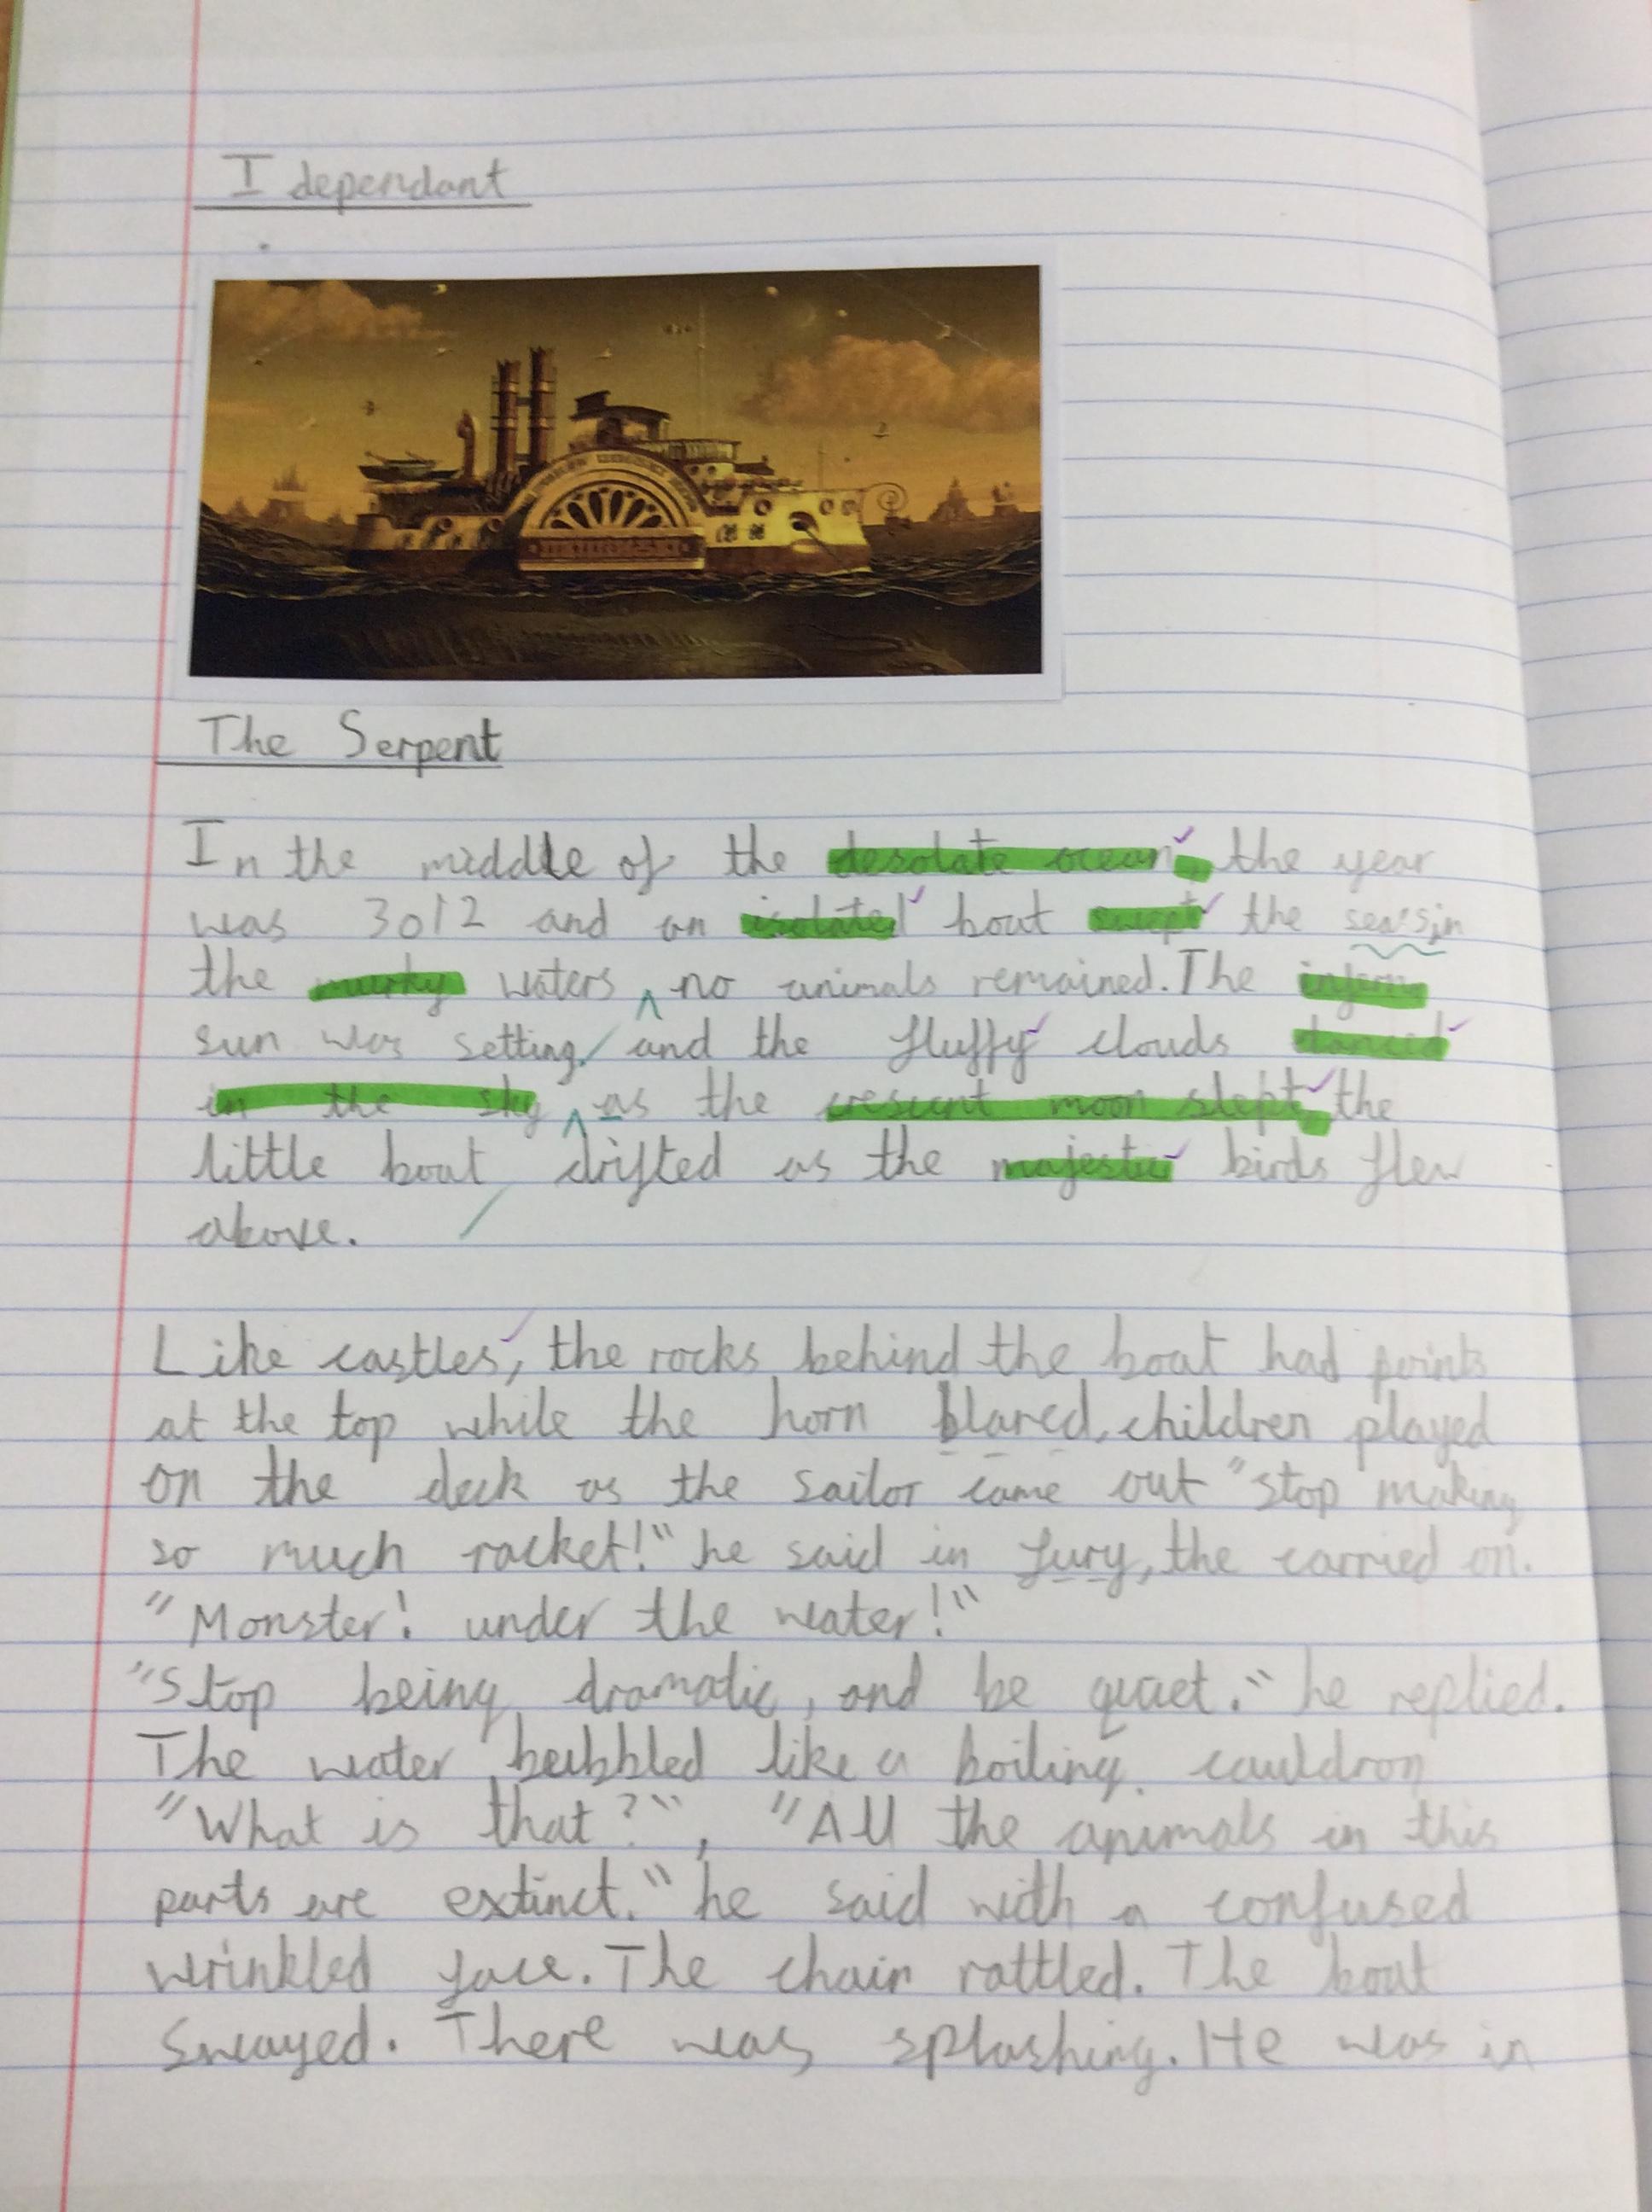 I dependant
The Serpent
In the middle of the desolate ocean, the year
was 3012 and an isolated boat swept the sea's in
the murky waters no animals remained. The
sun was setting, and the fluffy clouds danced
in the sky as the crescent moon slept, the
little boat drifted as the majestic birds flew
above.
Like castles, the rocks behind the boat had points
at the top while the horn blared, children played
on the deck as the sailor came out "stop making
so much racket!" he said in fury, the carried on.
"Monster! under the water!"
"Stop being dramatic, and be quiet." he replied.
The water bubbled like a boiling cauldron
"What is that?", "All the animals in this
parts are extinct." he said with a confused
wrinkled face. The chain rattled. The boat
swayed. There was splashing. He was in